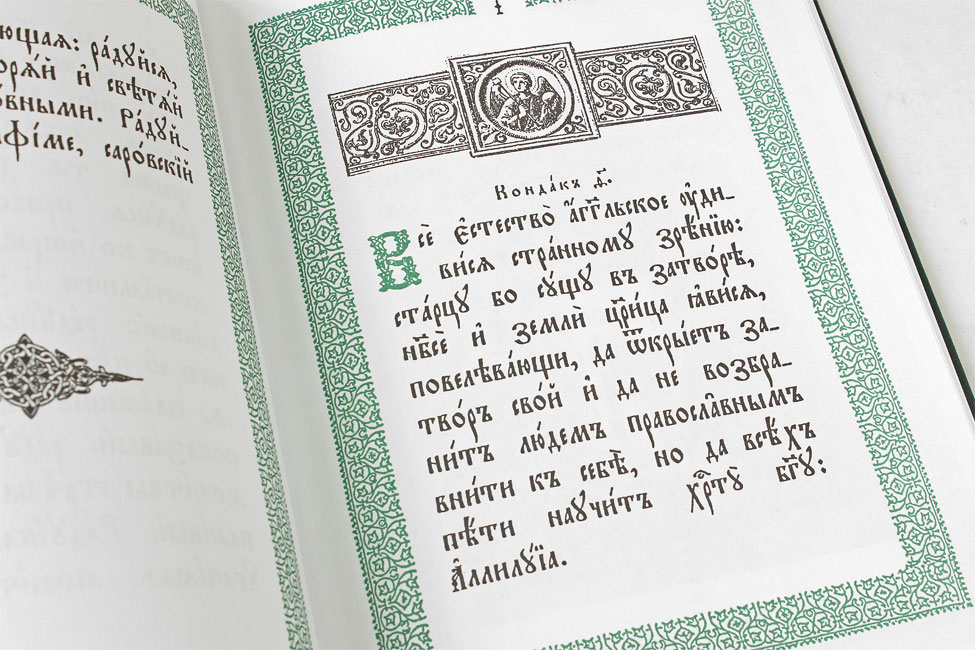 ющая: ра́дуйся,
орѧ́й и҆ свѣтѧ́й
о́вными. Ра́дуй_
афі́ме, саро́вскїй
Конда́къ
Всѐ є҆стество̀ а҆́гг҃льское ᲂу҆ди_
ви́сѧ стра́нному зрѣ́нїю:
ста́рцу бо су́щу въ затво́рѣ,
нб҃сѐ и҆ землѝ цр҃и́ца ꙗ҆ви́сѧ,
повелѣва́ющи, да ѿкры́етъ за_
тво́ръ сво́й и҆ да не возбра_
ни́тъ лю́демъ правосла̑внымъ
вни́ти къ себѣ̀, но да всѣ́хъ
пѣ́ти научи́тъ хрⷭ҇ту̀ бг҃у:
А҆ллилу́їа.